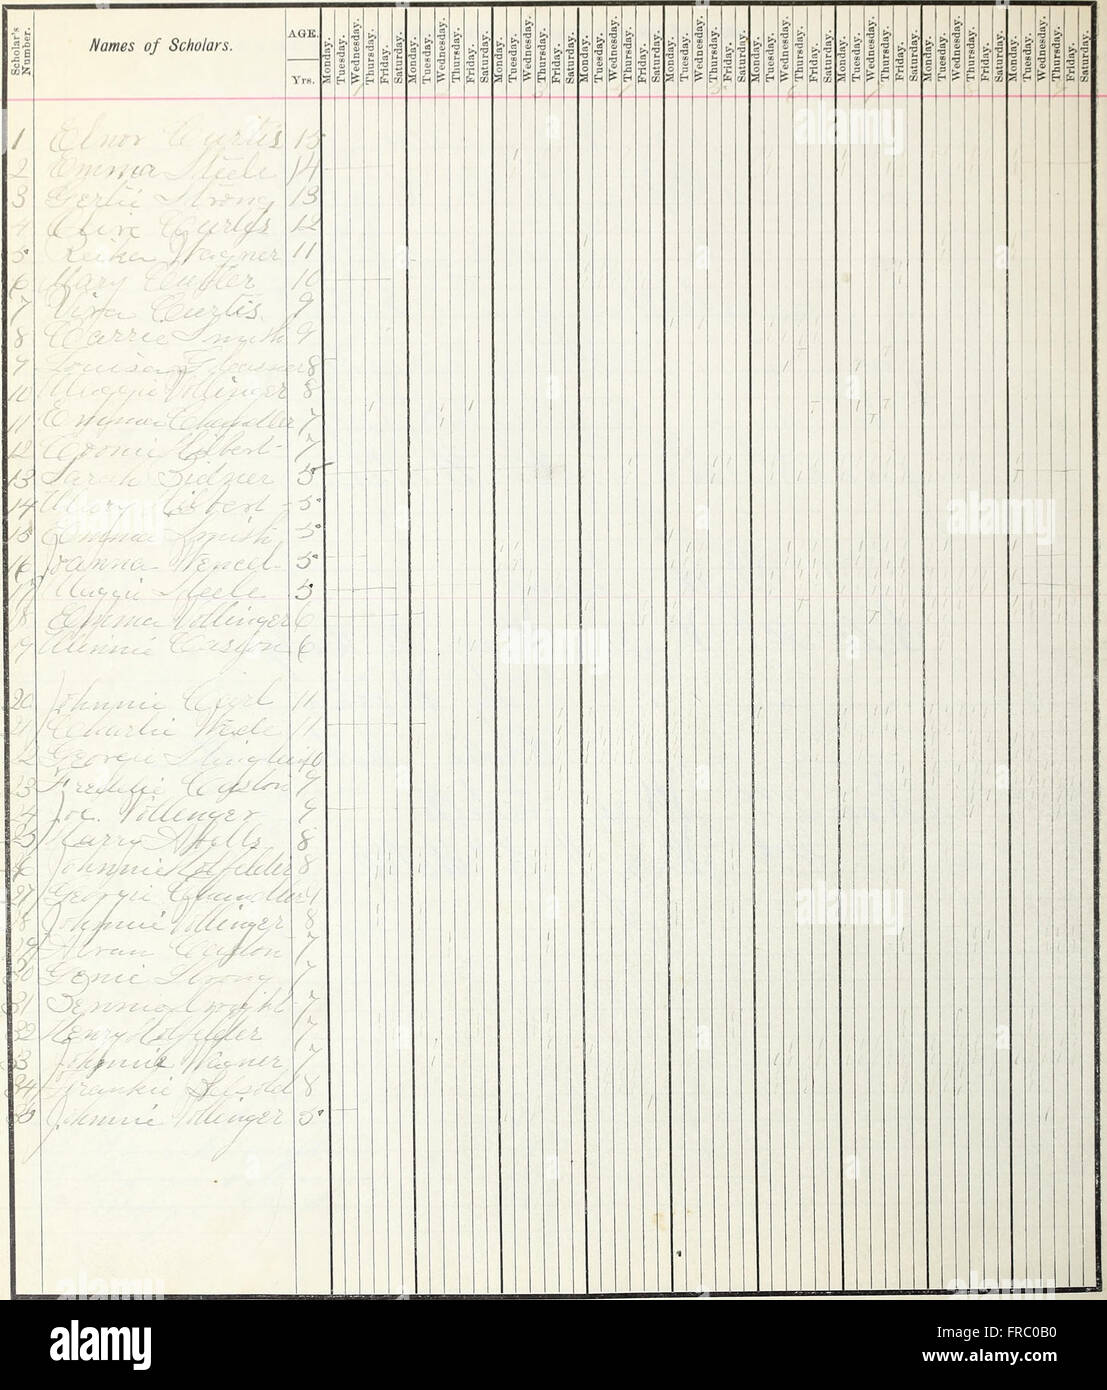 Scholar's Number.
Names of Scholars.
AGE.
Yrs.
Monday. Tuesday. Wednesday. Thursday. Friday. Saturday. Monday. Tuesday. Wednesday. Thursday. Friday. Saturday. Monday. Tuesday. Wednesday. Thursday. Friday. Saturday. Monday. Tuesday. Wednesday. Thursday. Friday. Saturday. Monday. Tuesday. Wednesday. Thursday. Friday. Saturday. Monday. Tuesday. Wednesday. Thursday. Friday. Saturday. Monday. Tuesday. Wednesday. Thursday. Friday. Saturday. Monday. Tuesday. Wednesday. Thursday. Friday. Saturday. Monday. Tuesday. Wednesday. Thursday. Friday. Saturday.
1 Elnor Curtis 15
2 Emma Steele 14
3 Gertie Strong 13
4 Olive Curtis 12
5 Wagner 11
6 Mary 10
7 Viva Curtis. 9
8 Carrie Smith 9
9 Louisa 8
10 Maggie Vollinger 8
11 Emma Chandler 7
12 Hilbert 7
13 Sarah Zidner 5
14 Mary Hilbert 5
15 Emma Smith 5
16 Joanna Wencel 5
17 Maggie Steele 5
18 Emma Vollinger 6
19 Minnie Caston 6
20 Johnnie 11
21 Charlie 11
22 George 10
23 Freddie Caston 9
24 Joe. Vollenger 9
25 Harry 8
26 Johnnie Hofelder 8
27 Georgie Chandler
28 Johnnie Vollinger 8
29 Alvan Caston 7
30 Genie Strong 7
31 7
32 Henry Hofelder 7
33 Johnnie Wagner 7
34 Frankie 8
35 Johnnie Vollinger 5
alamy
alamy stock photo
FRC0B0
www.alamy.com